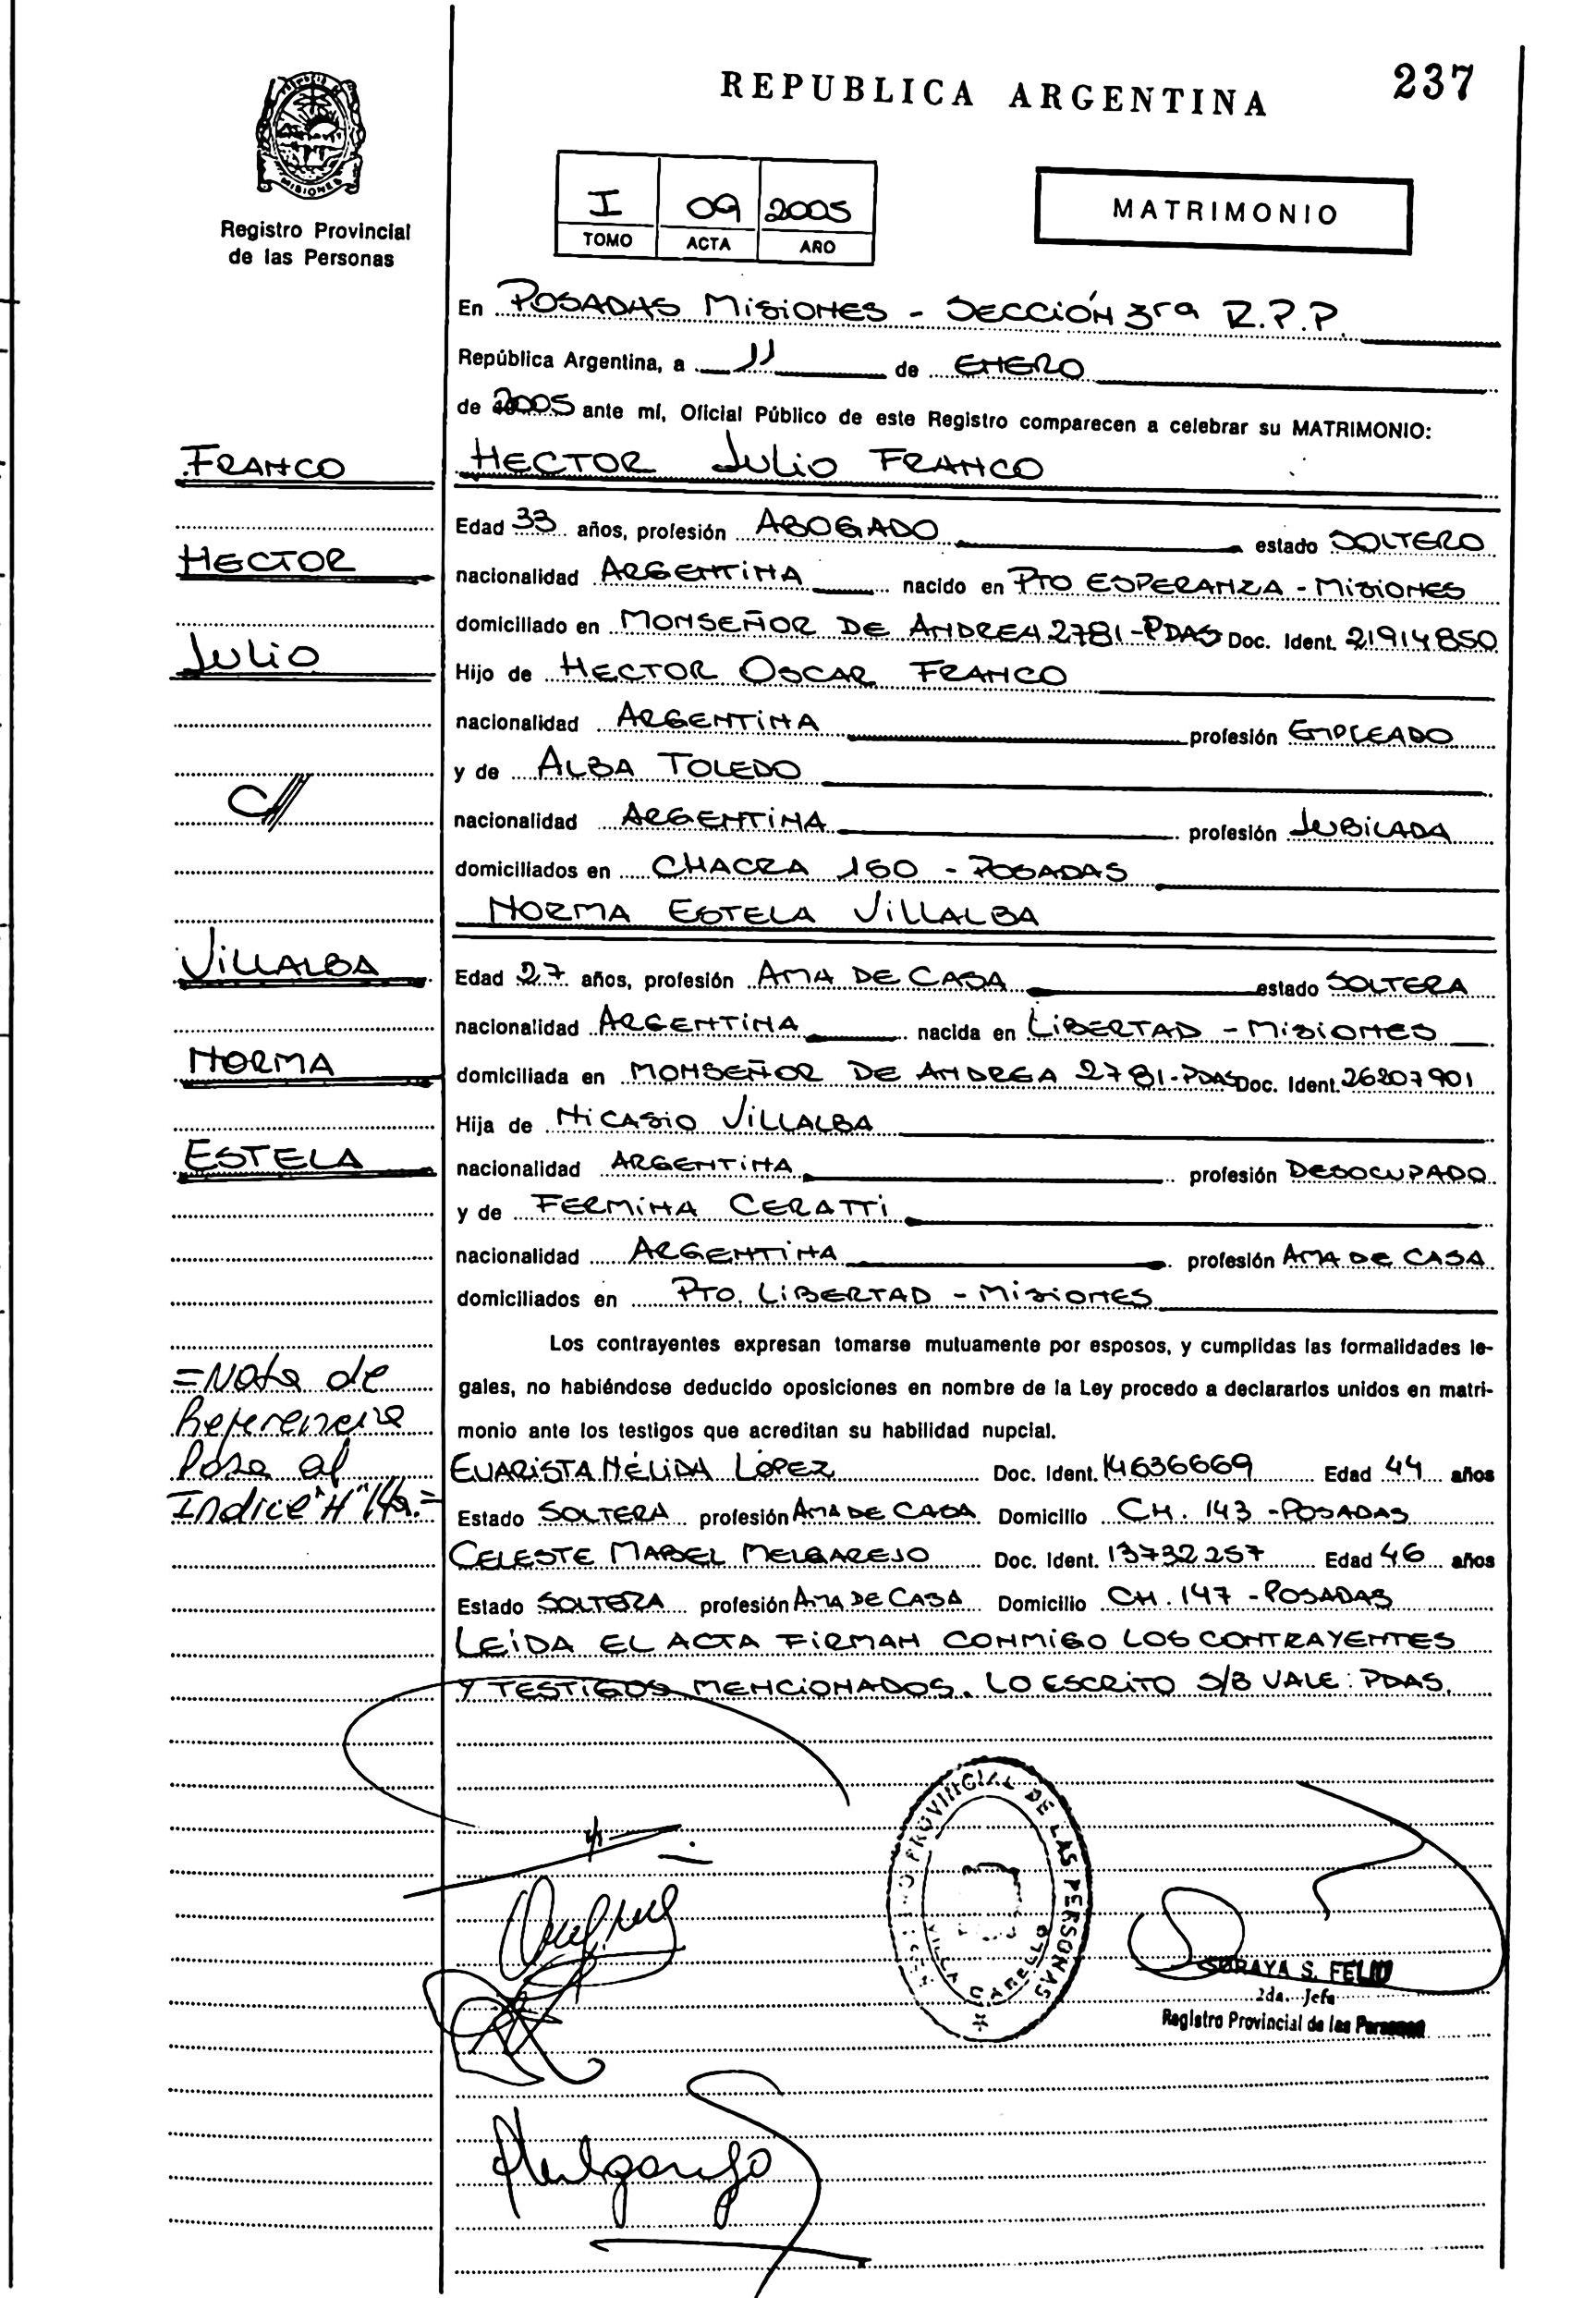 REPUBLICA ARGENTINA 237
MISIONES
Registro Provincial
de las Personas
I 09 2005
TOMO ACTA AÑO
MATRIMONIO
En POSADAS MISIONES - SECCIÓN 3ra R.P.P.
República Argentina, a 11 de ENERO
de 2005 ante mí, Oficial Público de este Registro comparecen a celebrar su MATRIMONIO:
FRANCO
HECTOR JULIO FRANCO
Edad 33 años, profesión ABOGADO estado SOLTERO
HECTOR
nacionalidad ARGENTINA nacido en PTO ESPERANZA - MISIONES
domiciliado en MONSEÑOR DE ANDREA 2781-PDAS Doc. Ident. 21914850
JULIO
Hijo de HECTOR OSCAR FRANCO
nacionalidad ARGENTINA profesión EMPLEADO
y de ALBA TOLEDO
C//
nacionalidad ARGENTINA profesión JUBILADA
domiciliados en CHACRA 150 - POSADAS
NORMA ESTELA VILLALBA
VILLALBA
Edad 27 años, profesión AMA DE CASA estado SOLTERA
nacionalidad ARGENTINA nacida en LIBERTAD - MISIONES
NORMA
domiciliada en MONSEÑOR DE ANDREA 2781-PDAS Doc. Ident. 26207901
Hija de NICASIO VILLALBA
ESTELA
nacionalidad ARGENTINA profesión DESOCUPADO
y de FERMINA CERATTI
nacionalidad ARGENTINA profesión AMA DE CASA
domiciliados en PTO. LIBERTAD - MISIONES
Los contrayentes expresan tomarse mutuamente por esposos, y cumplidas las formalidades le-
gales, no habiéndose deducido oposiciones en nombre de la Ley procedo a declararlos unidos en matri-
monio ante los testigos que acreditan su habilidad nupcial.
=Nota de
Referencia
Pasa al
Indice "H"
EVARISTA NÉLIDA LÓPEZ Doc. Ident. 14636669 Edad 44 años
Estado SOLTERA profesión AMA DE CASA Domicilio CH. 143 - POSADAS
CELESTE MABEL MELGAREJO Doc. Ident. 13732257 Edad 46 años
Estado SOLTERA profesión AMA DE CASA Domicilio CH. 147 - POSADAS
LEÍDA EL ACTA FIRMAN CONMIGO LOS CONTRAYENTES
Y TESTIGOS MENCIONADOS. LO ESCRITO S/B VALE: PDAS.
PROVINCIAL DE LAS PERSONAS
SORAYA S. FELIU
2da. Jefa
Registro Provincial de las Personas
Melgarejo